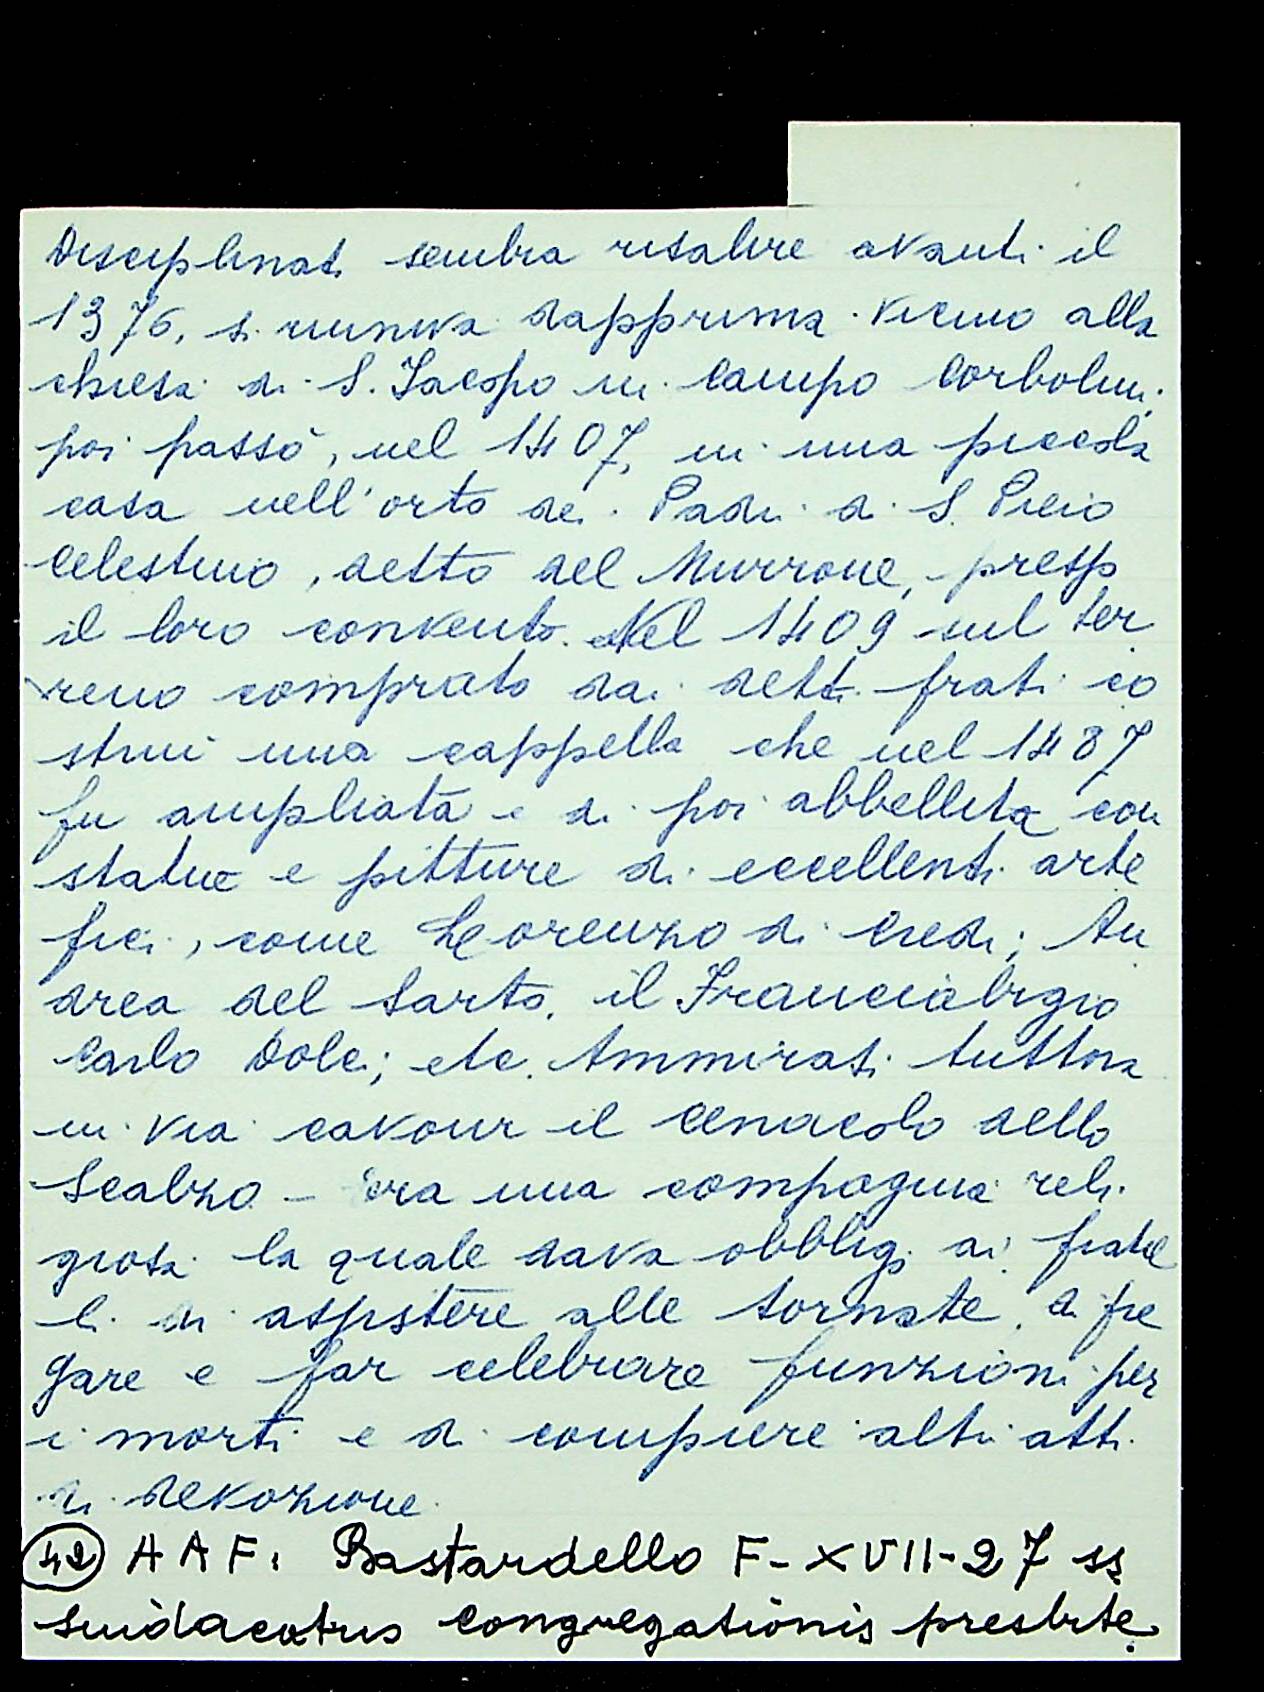 Disciplinati sembra risalire avanti il
1376, si riuniva dapprima vicino alla
chiesa di S. Jacopo in Campo Corbolini,
poi passò, nel 1407, in una piccola
casa nell'orto dei Padri di S. Piero
Celestino, detto del Murrone, presso
il loro convento. Nel 1409 sul ter
reno comprato dai detti frati co
struì una cappella che nel 1487
fu ampliata e di poi abbellita con
statue e pitture di eccellenti arte
fici, come Lorenzo di Credi; An
drea del Sarto, il Franciabigio
Carlo Dolci; etc. Ammirasi tuttora
in via Cavour il Cenacolo dello
Scalzo - era una compagnia reli
giosa la quale dava obbligo ai fratel
li di assistere alle tornate, di pre
gare e far celebrare funzioni per
i morti e di compiere altri atti
di devozione.
42 A A F: Bastardello F-XVII-27 ss
congregationis presbite